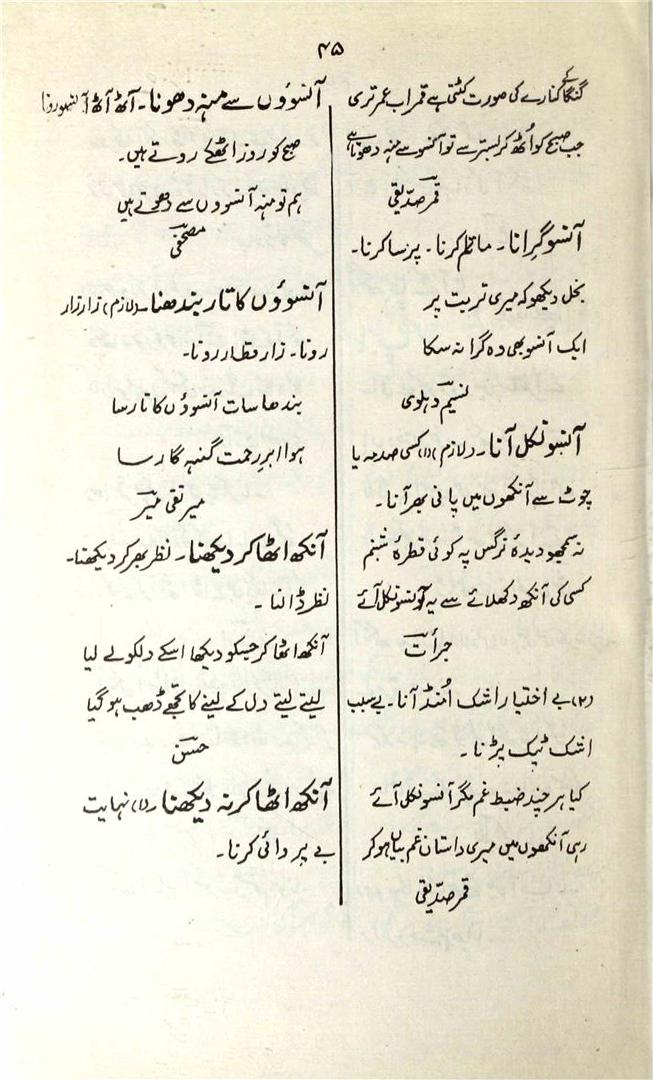 ۴۵
گنگا کے کنارے کی صورت کٹتی ہے قمر اب عمر تری
جب صبح کو اُٹھ کر بستر سے تو آنسو سے منہ دھوتا ہے
قمر صدیقی
آنسو گرانا۔ ماتم کرنا۔ پرسا کرنا۔
بخل دیکھو کہ میری تربت پر
ایک آنسو بھی وہ گرا نہ سکا
نسیم دہلوی
آنسو نکل آنا۔ (لازم) (۱) کسی صدمہ یا
چوٹ سے آنکھوں میں پانی بھر آنا۔
نہ سمجھو دیدۂ نرگس پہ کوئی قطرۂ شبنم
کسی کی آنکھ دکھلائے سے یہ آنسو نکل آئے
جرأت
(۲) بے اختیار اشک اُمنڈ آنا۔ بے سبب
اشک ٹپک پڑنا۔
کیا ہر چند ضبط غم مگر آنسو نکل آئے
رہی آنکھوں میں میری داستان غم بیاں ہو کر
قمر صدیقی
آنسوؤں سے منہ دھونا۔ آٹھ آٹھ آنسو رونا
صبح کو روز اٹھکے روتے ہیں۔
ہم تو منہ آنسووں سے دھوتے ہیں
مصحفی
آنسوؤں کا تار بندھنا۔ (لازم) زار زار
رونا۔ زار قطار رونا۔
بندھا سات آنسوؤں کا تار سا
ہوا ابرِ رحمت گنہہ گار سا
میر تقی میر
آنکھ اٹھا کر دیکھنا۔ نظر بھر کر دیکھنا۔
نظر ڈالنا۔
آنکھ اٹھا کر جسکو دیکھا اسکے دلکو لے لیا
لیتے لیتے دل کے لینے کا تجھے ڈھب ہو گیا
حسن
آنکھ اٹھا کر نہ دیکھنا۔ (۱) نہایت
بے پروائی کرنا۔